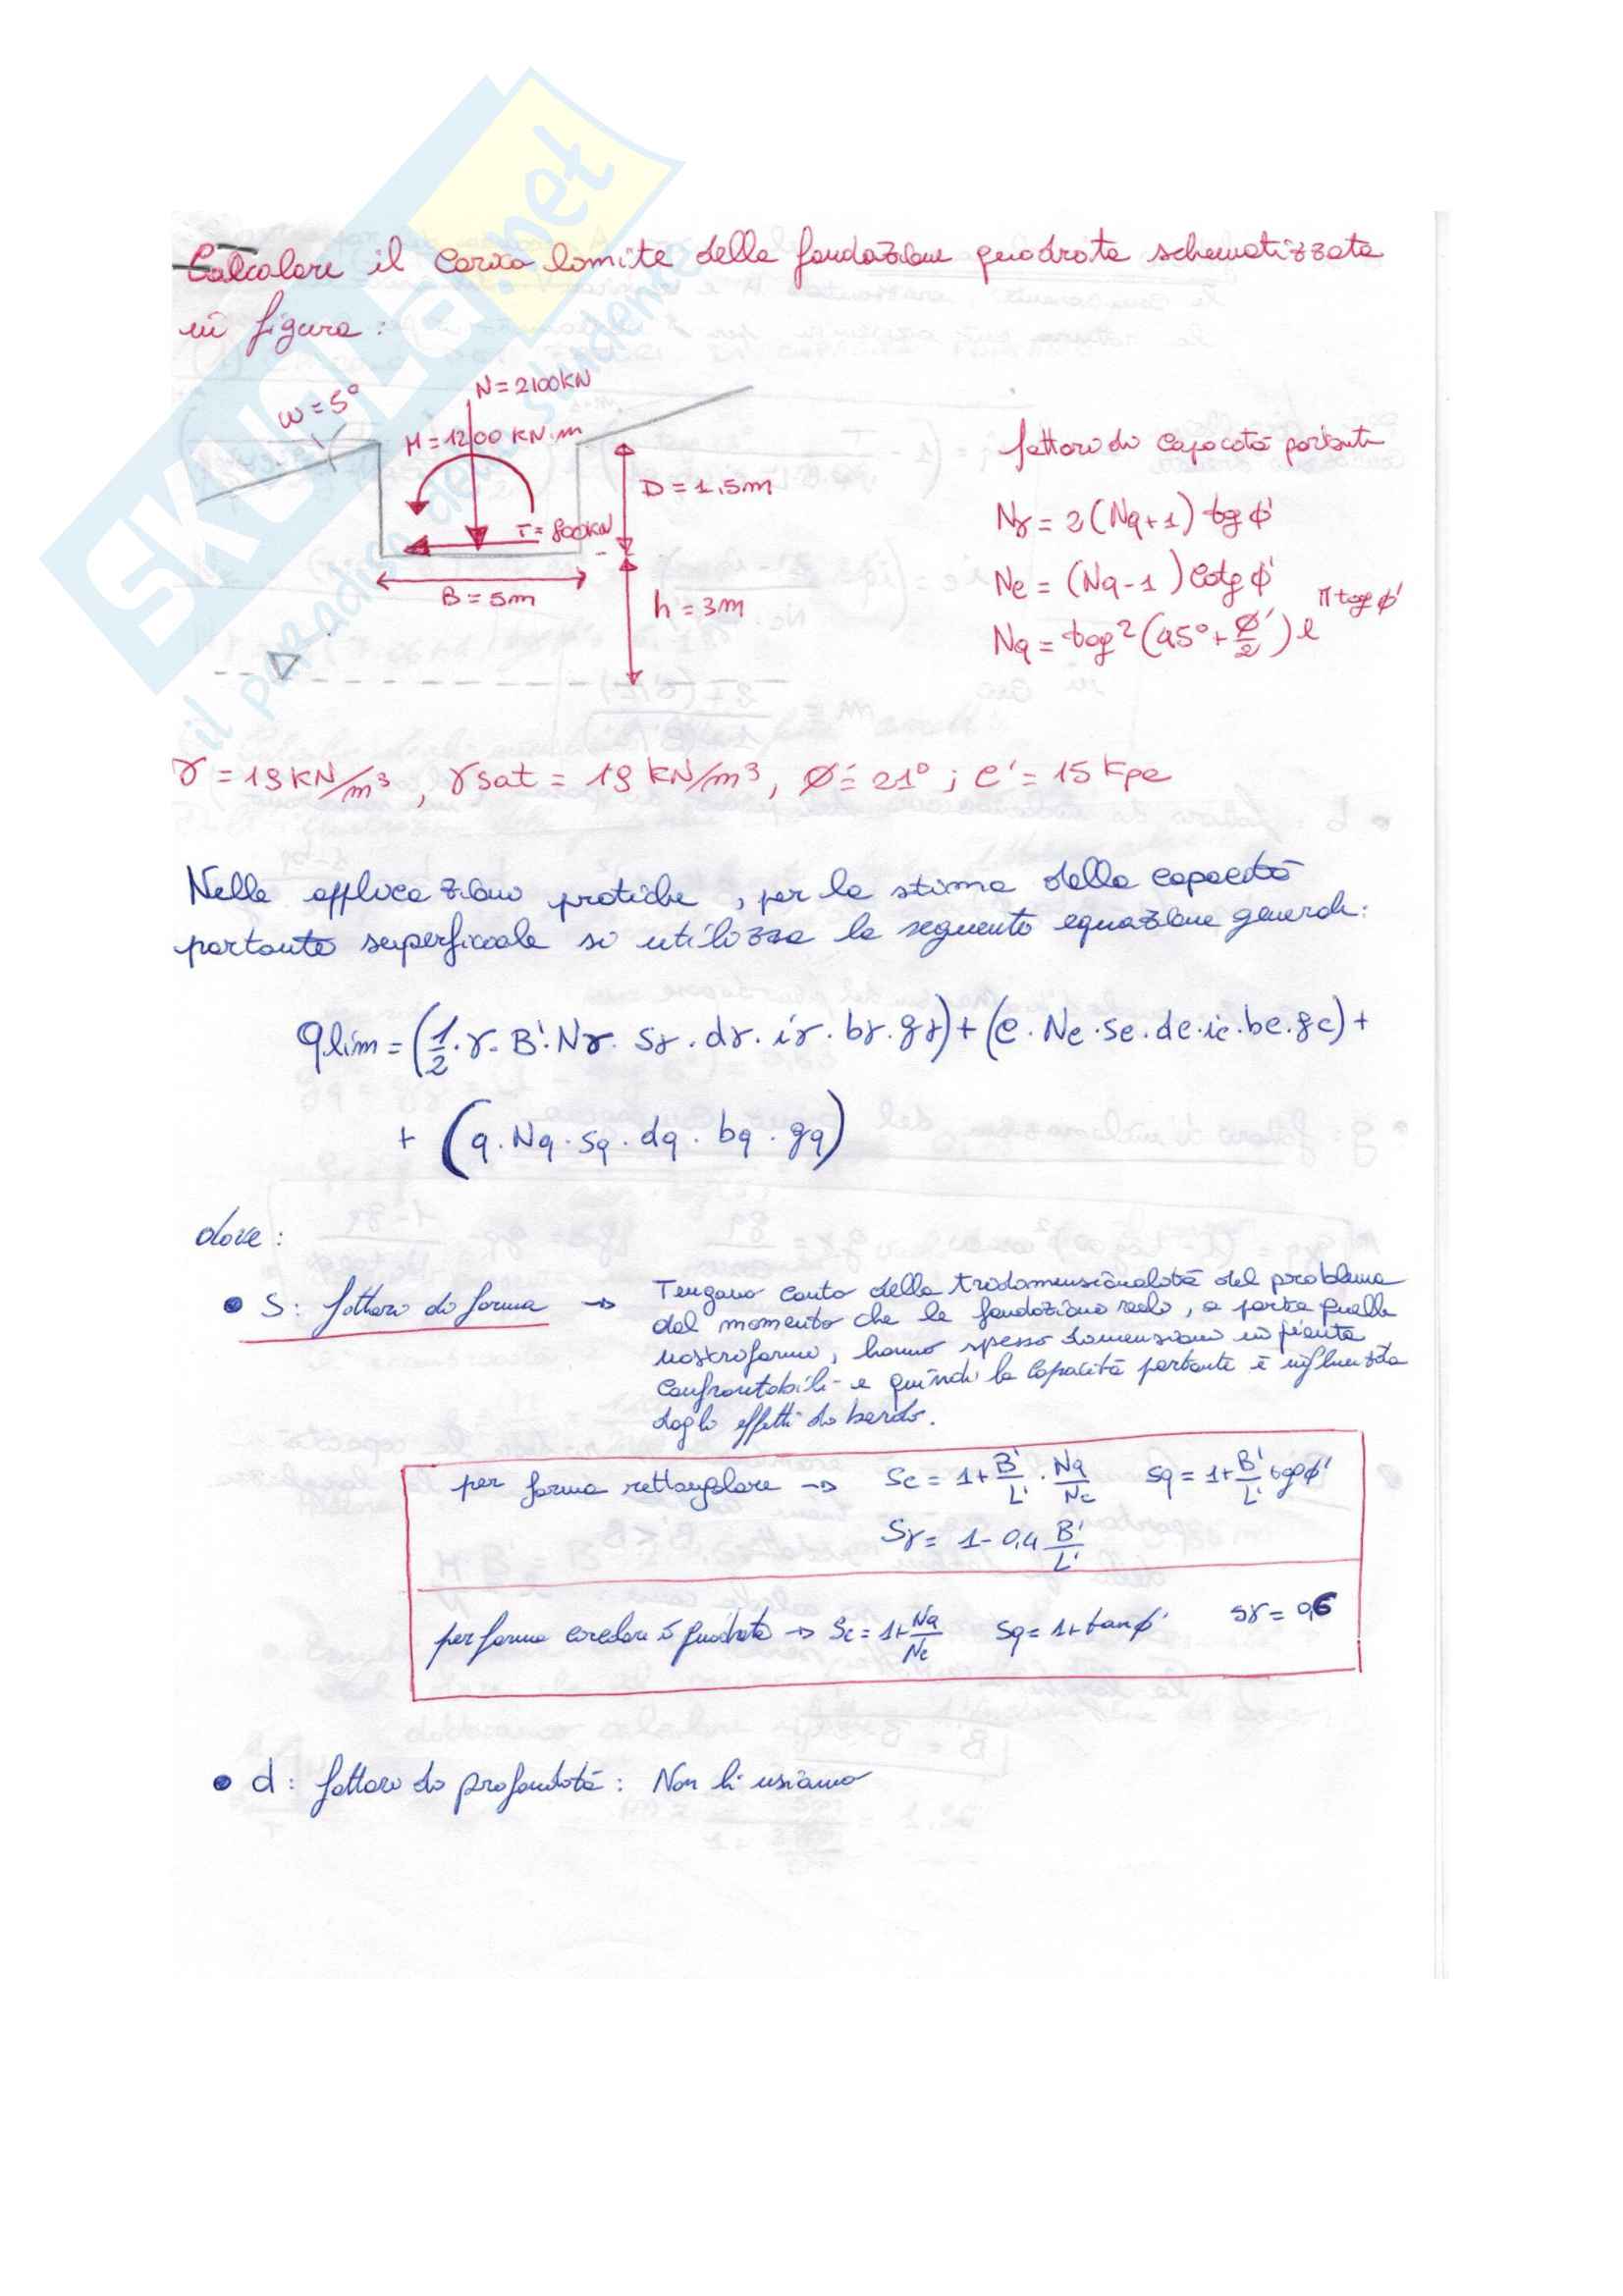 Calcolare il carico limite della fondazione quadrata schematizzata
in figura:
SKUOLA.net
il paradiso dello studente
ω = 5°
N = 2100 KN
M = 1200 KN·m
D = 1,5m
T = 800KN
B = 5m
h = 3m
fattori di capacità portante
Nγ = 2(Nq+1) tg φ'
Nc = (Nq-1) cotg φ'
Nq = tag²(45°+φ'/2) e^(π tag φ')
γ = 19 KN/m³, γsat = 19 KN/m³, φ' = 21°; c' = 15 Kpa
Nelle applicazioni pratiche, per la stima della capacità
portante superficiale si utilizza la seguente equazione generale:
qlim = (1/2·γ·B'·Nγ·sγ·dγ·iγ·bγ·gγ) + (c·Nc·sc·dc·ic·bc·gc) +
+ (q·Nq·sq·dq·bq·gq)
dove:
• s: fattori di forma → Tengano conto della tridimensionalità del problema
dal momento che le fondazioni reali, a parte quelle
nastriformi, hanno spesso dimensioni in pianta
confrontabili e quindi la capacità portante è influenzata
dagli effetti di bordo.
per forma rettangolare → Sc = 1+B'/L'·Nq/Nc Sq = 1+B'/L' tgφ'
Sγ = 1-0,4 B'/L'
per forma circolare o quadrata → Sc = 1+Nq/Nc Sq = 1+tanφ' sγ = 0,6
• d: fattori di profondità: Non li usiamo